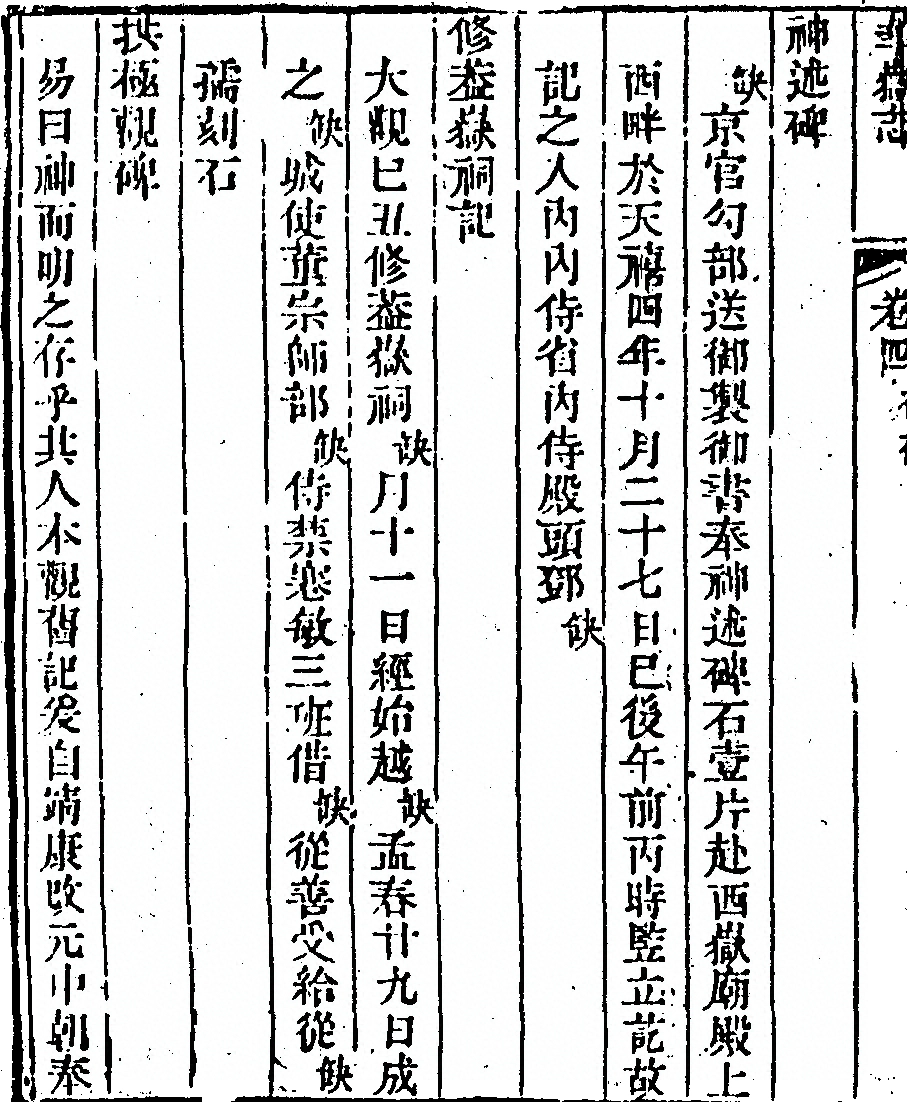 卷四
神述碑
缺京官勾部送御製御書奉神述碑石壹片赴西嶽廟殿上
西畔於天禧四年十月二十七日巳後午前丙時監立訖故
記之人內內侍省內侍殿頭鄧缺
修葢嶽祠記
大觀己丑修葢嶽祠缺月十一日經始越缺孟春廿九日成
之缺城使董宗師部缺侍禁惠敏三班借缺從善受給從缺
孺刻石
拱極觀碑
易曰神而明之存乎其人本觀舊記爰自靖康改元中朝奉